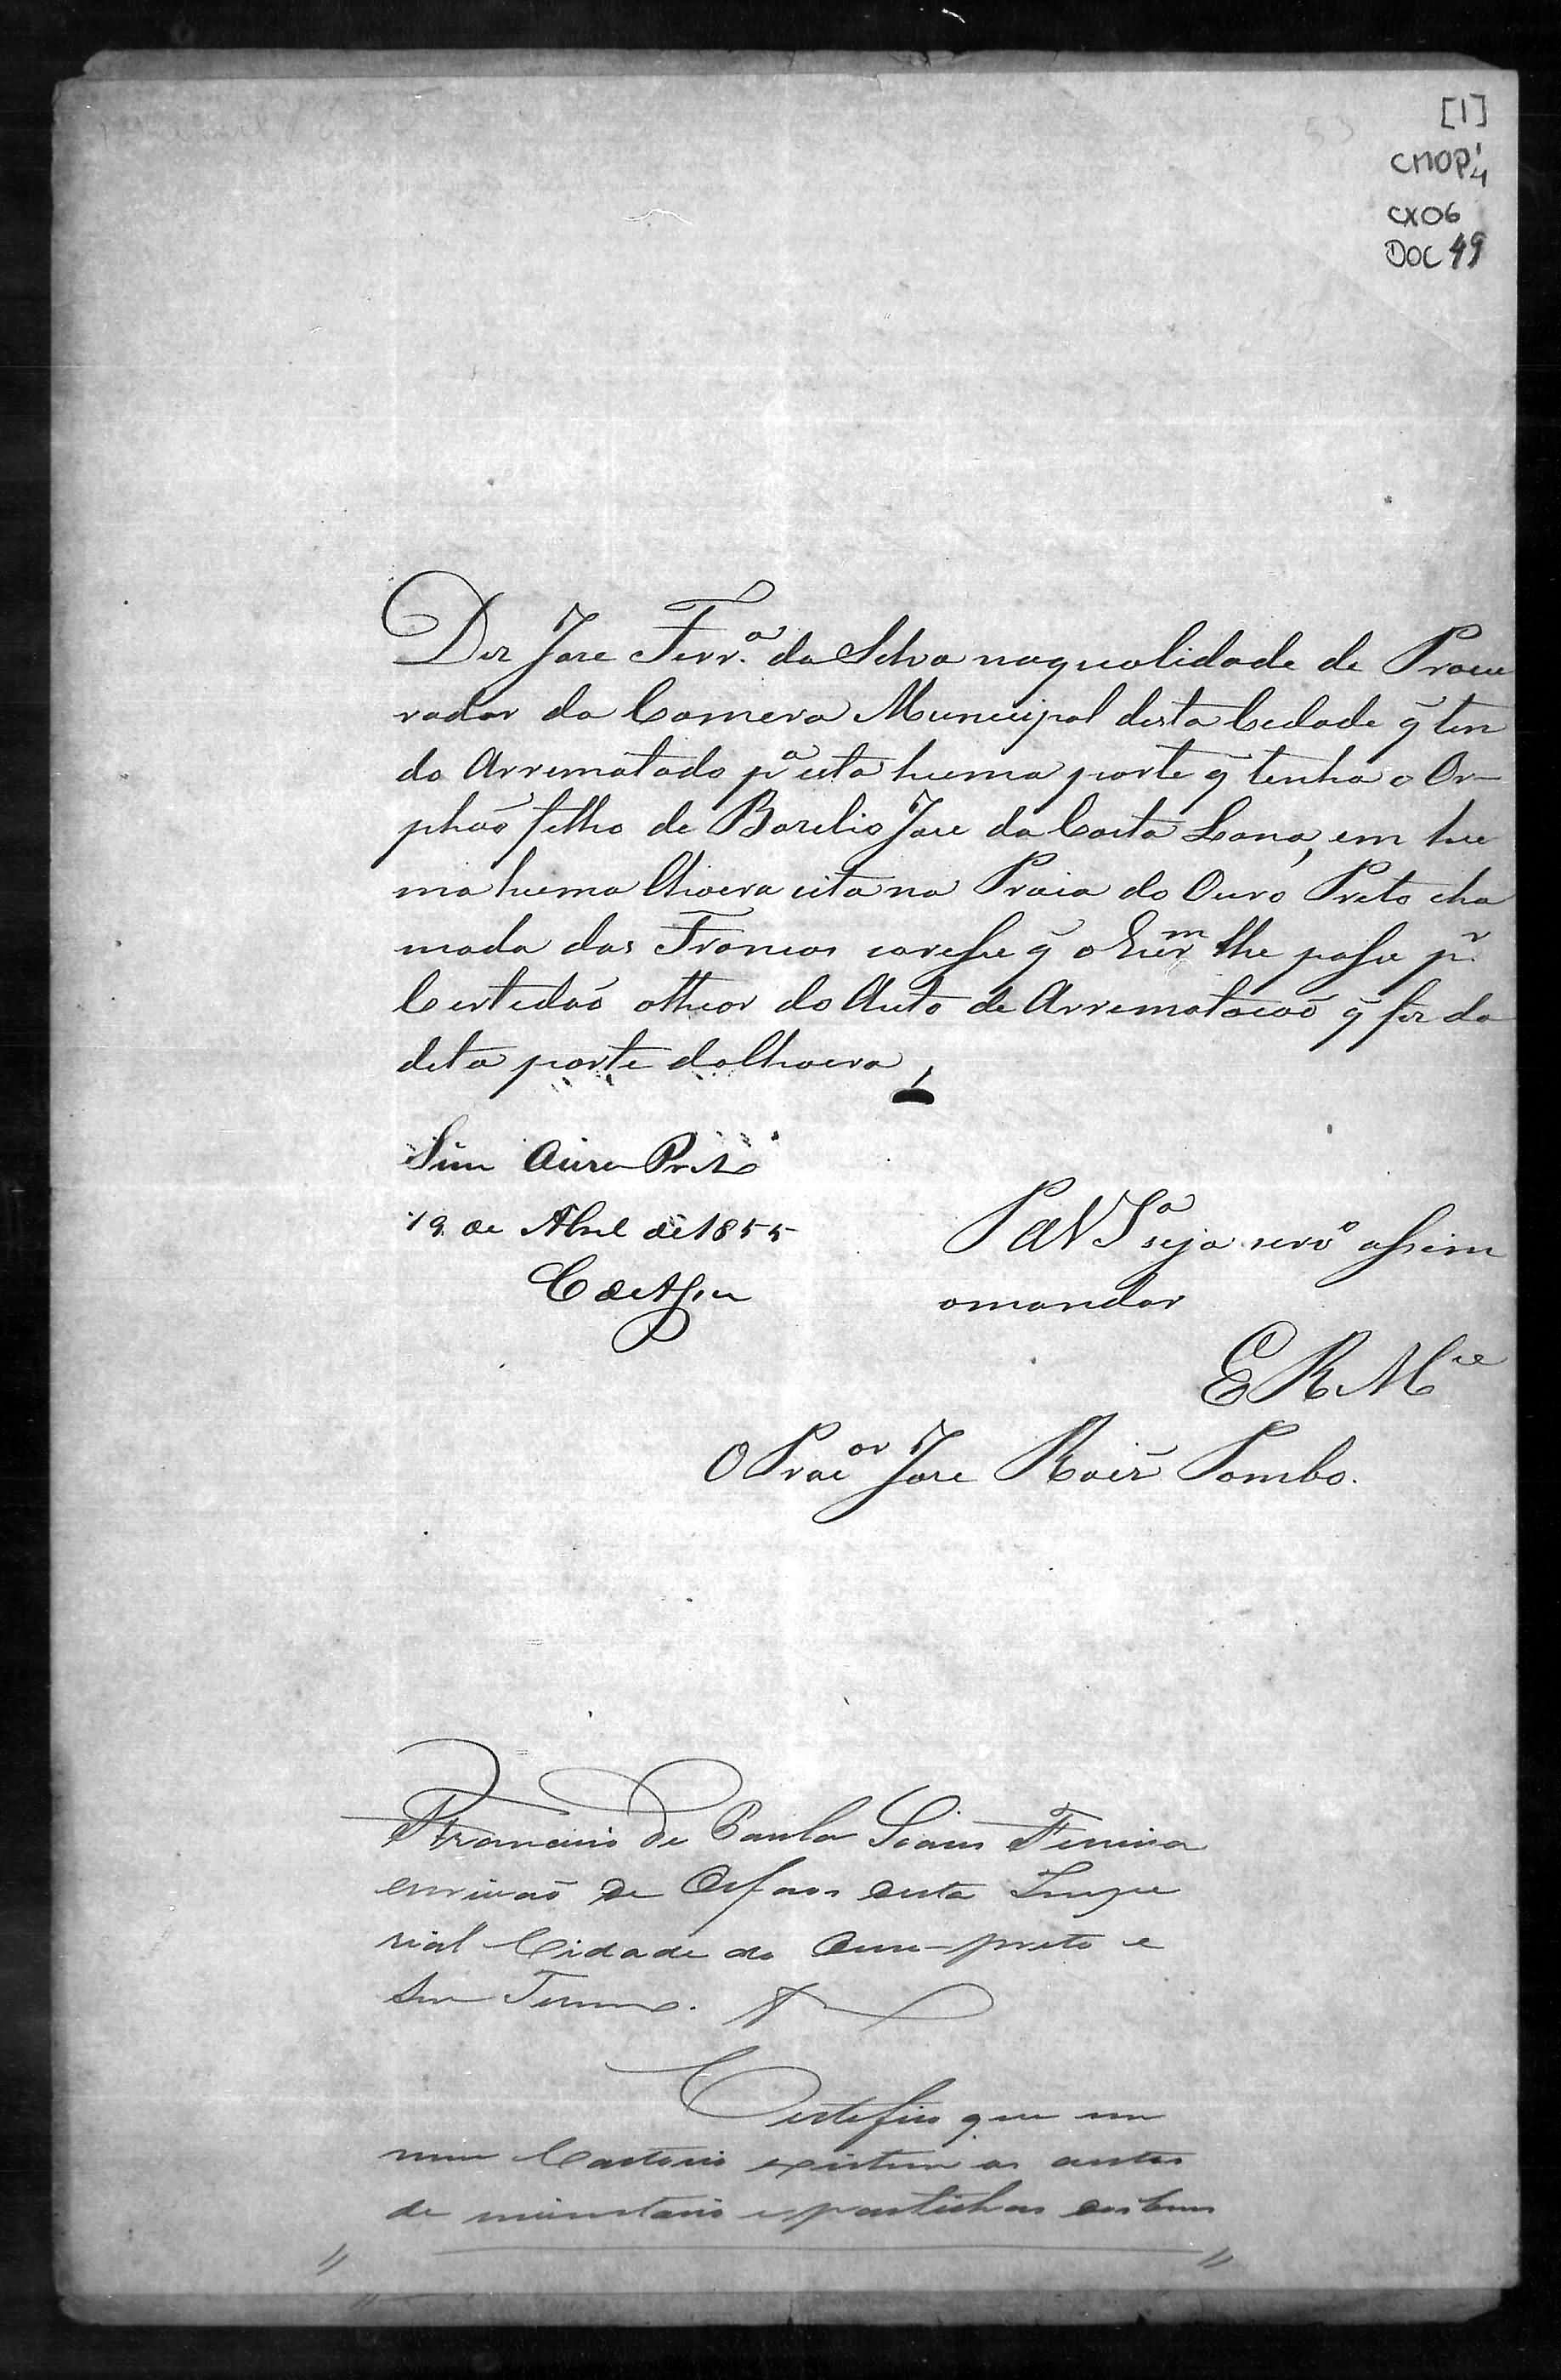 [1]
CMOP 1/4
CX06
DOC 49
Diz Jose Ferr.ª da Silva naqualidade de Procu
rador da Camera Municipal desta Cidade q̃ ten
do Arrematado pª esta huma parte q̃ tenha o Or-
phaõ filho de Bazilio Jose da Costa Lana, em hu
ma huma Choera cita na Praia do Ouro Preto cha
mada das Francos caresse q̃ o lhe passe pr.
Certidaõ otheor do Auto de Arrematacaõ q̃ fez da
dita parte daChoera
Sim Ouro Preto
19 de Abril de 1855
P a V Sª seja servº assim
omandar
E R Mce
O Procor Jose Roiz Pombo.
Francisco de Paula Soares Ferreira
escrivaõ de Orfaos desta Impe
rial Cidade do Ouro-preto e
seu Termo.
Certefico que em
meu Cartorio existem os autos
de inventario e partilhas dos bens